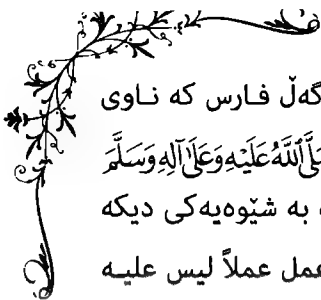 گەڵ فارس كە ناوی
صَلَّى ٱللَّهُ عَلَيْهِ وَعَلَىٰ آلِهِ وَسَلَّمَ
بە شێوەیەکی دیکە
عمل عملاً ليس عليه